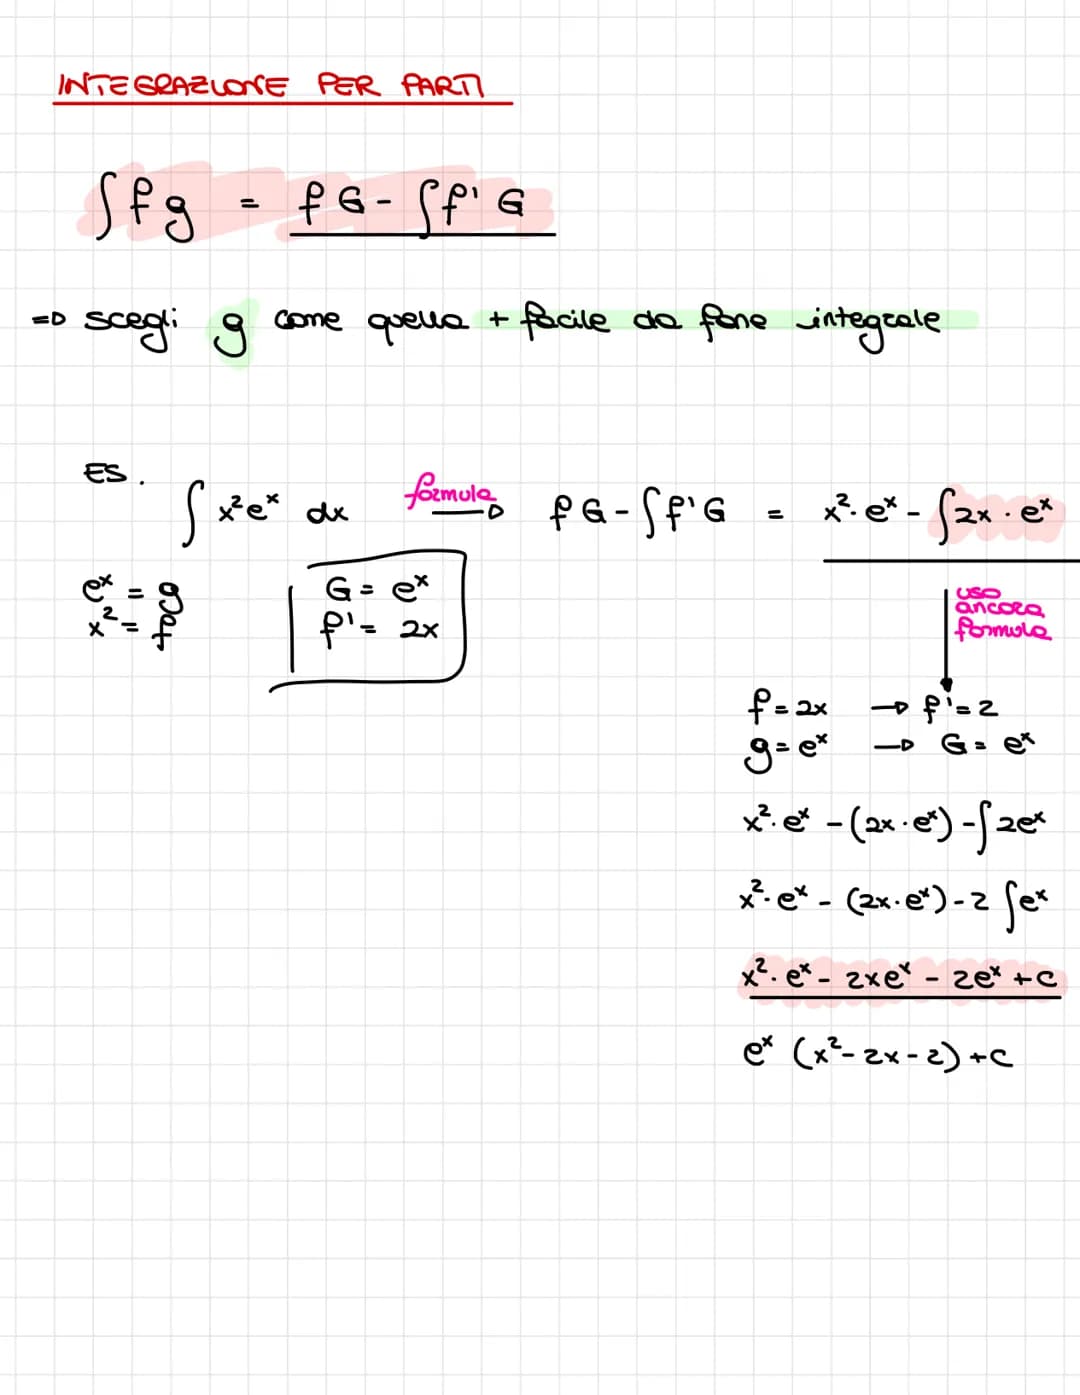 INTEGRAZIONE PER PARTI
∫fg = fG - ∫f'G
=D scegli g come quella + facile da fare integrale
ES. ∫x²eˣ dx formula → fG - ∫f'G = x²·eˣ - ∫2x·eˣ
eˣ = g
x² = f
G = eˣ
f' = 2x
uso
ancora
formula
f = 2x → f' = 2
g = eˣ → G = eˣ
x²·eˣ - (2x·eˣ) - ∫2eˣ
x²·eˣ - (2x·eˣ) - 2∫eˣ
x²·eˣ - 2xeˣ - 2eˣ + c
eˣ (x² - 2x - 2) + c